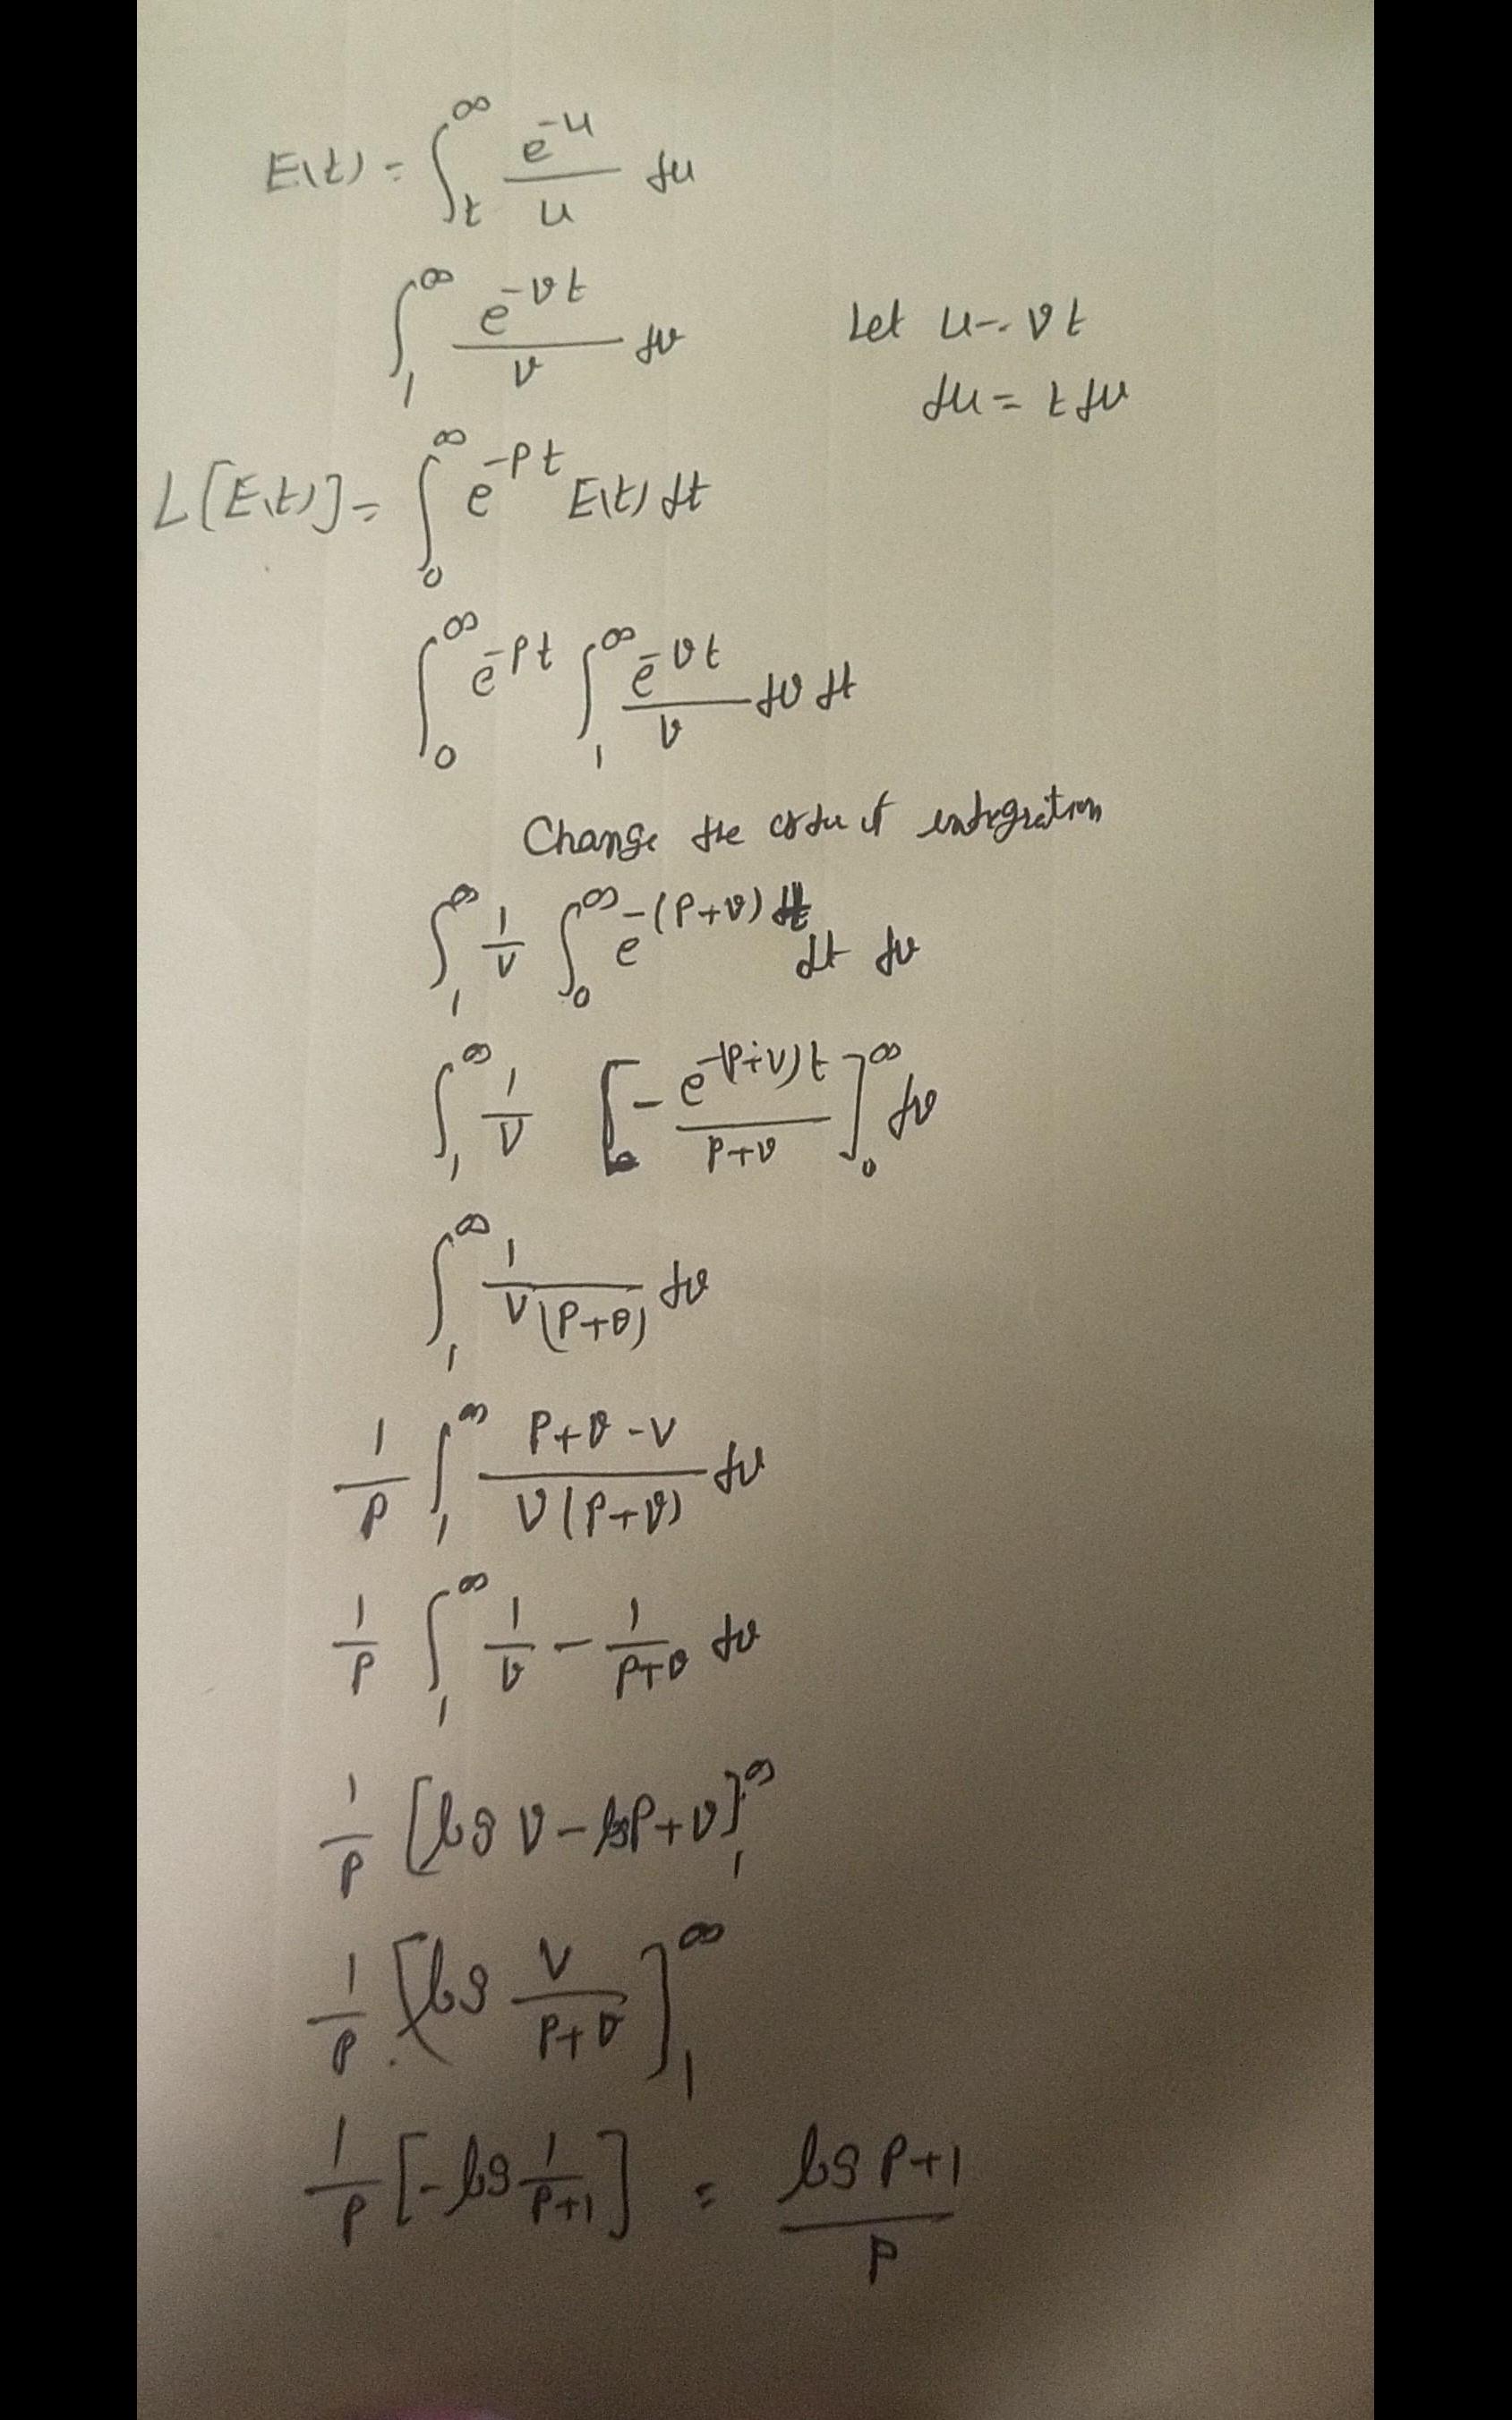 E(t) = ∫_t^∞ e^{-u}/u du
∫_1^∞ e^{-vt}/v dv Let u = vt
du = t dv
L[E(t)] = ∫_0^∞ e^{-pt} E(t) dt
∫_0^∞ e^{-pt} ∫_1^∞ e^{-vt}/v dv dt
Change the order of integration
∫_1^∞ 1/v ∫_0^∞ e^{-(p+v)t} dt dv
∫_1^∞ 1/v [- e^{-(p+v)t}/(p+v)]_0^∞ dv
∫_1^∞ 1/(v(p+v)) dv
1/p ∫_1^∞ (p+v-v)/(v(p+v)) dv
1/p ∫_1^∞ 1/v - 1/(p+v) dv
1/p [log v - log p+v]_1^∞
1/p [log v/(p+v)]_1^∞
1/p [-log 1/(p+1)] = (log p+1)/p